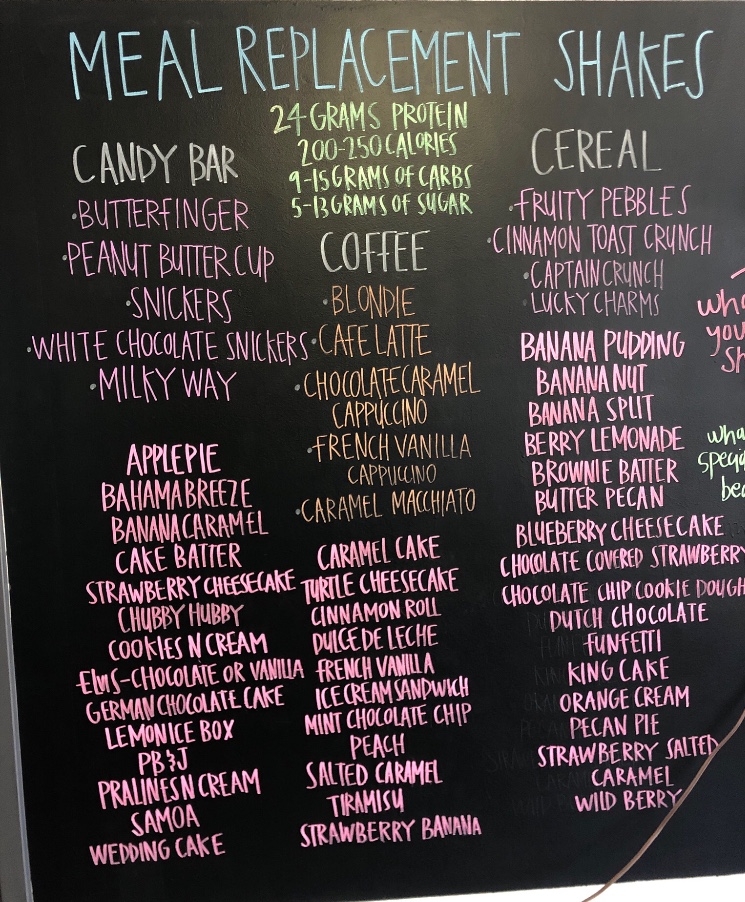 MEAL REPLACEMENT SHAKES
24 GRAMS PROTEIN
200-250 CALORIES
9-15 GRAMS OF CARBS
5-13 GRAMS OF SUGAR
CANDY BAR
·BUTTERFINGER
·PEANUT BUTTER CUP
·SNICKERS
·WHITE CHOCOLATE SNICKERS
·MILKY WAY
APPLE PIE
BAHAMA BREEZE
BANANA CARAMEL
CAKE BATTER
STRAWBERRY CHEESECAKE
CHUBBY HUBBY
COOKIES N CREAM
ELVIS-CHOCOLATE OR VANILLA
GERMAN CHOCOLATE CAKE
LEMON ICE BOX
PB&J
PRALINES N CREAM
SAMOA
WEDDING CAKE
COFFEE
·BLONDIE
·CAFE LATTE
·CHOCOLATE CARAMEL
CAPPUCCINO
·FRENCH VANILLA
CAPPUCINO
·CARAMEL MACCHIATO
CARAMEL CAKE
TURTLE CHEESECAKE
CINNAMON ROLL
DULCE DE LECHE
FRENCH VANILLA
ICE CREAM SANDWICH
MINT CHOCOLATE CHIP
PEACH
SALTED CARAMEL
TIRAMISU
STRAWBERRY BANANA
CEREAL
·FRUITY PEBBLES
·CINNAMON TOAST CRUNCH
·CAPTAIN CRUNCH
·LUCKY CHARMS
BANANA PUDDING
BANANA NUT
BANANA SPLIT
BERRY LEMONADE
BROWNIE BATTER
BUTTER PECAN
BLUEBERRY CHEESECAKE
CHOCOLATE COVERED STRAWBERRY
CHOCOLATE CHIP COOKIE DOUGH
DUTCH CHOCOLATE
FUNFETTI
KING CAKE
ORANGE CREAM
PECAN PIE
STRAWBERRY SALTED
CARAMEL
WILD BERRY